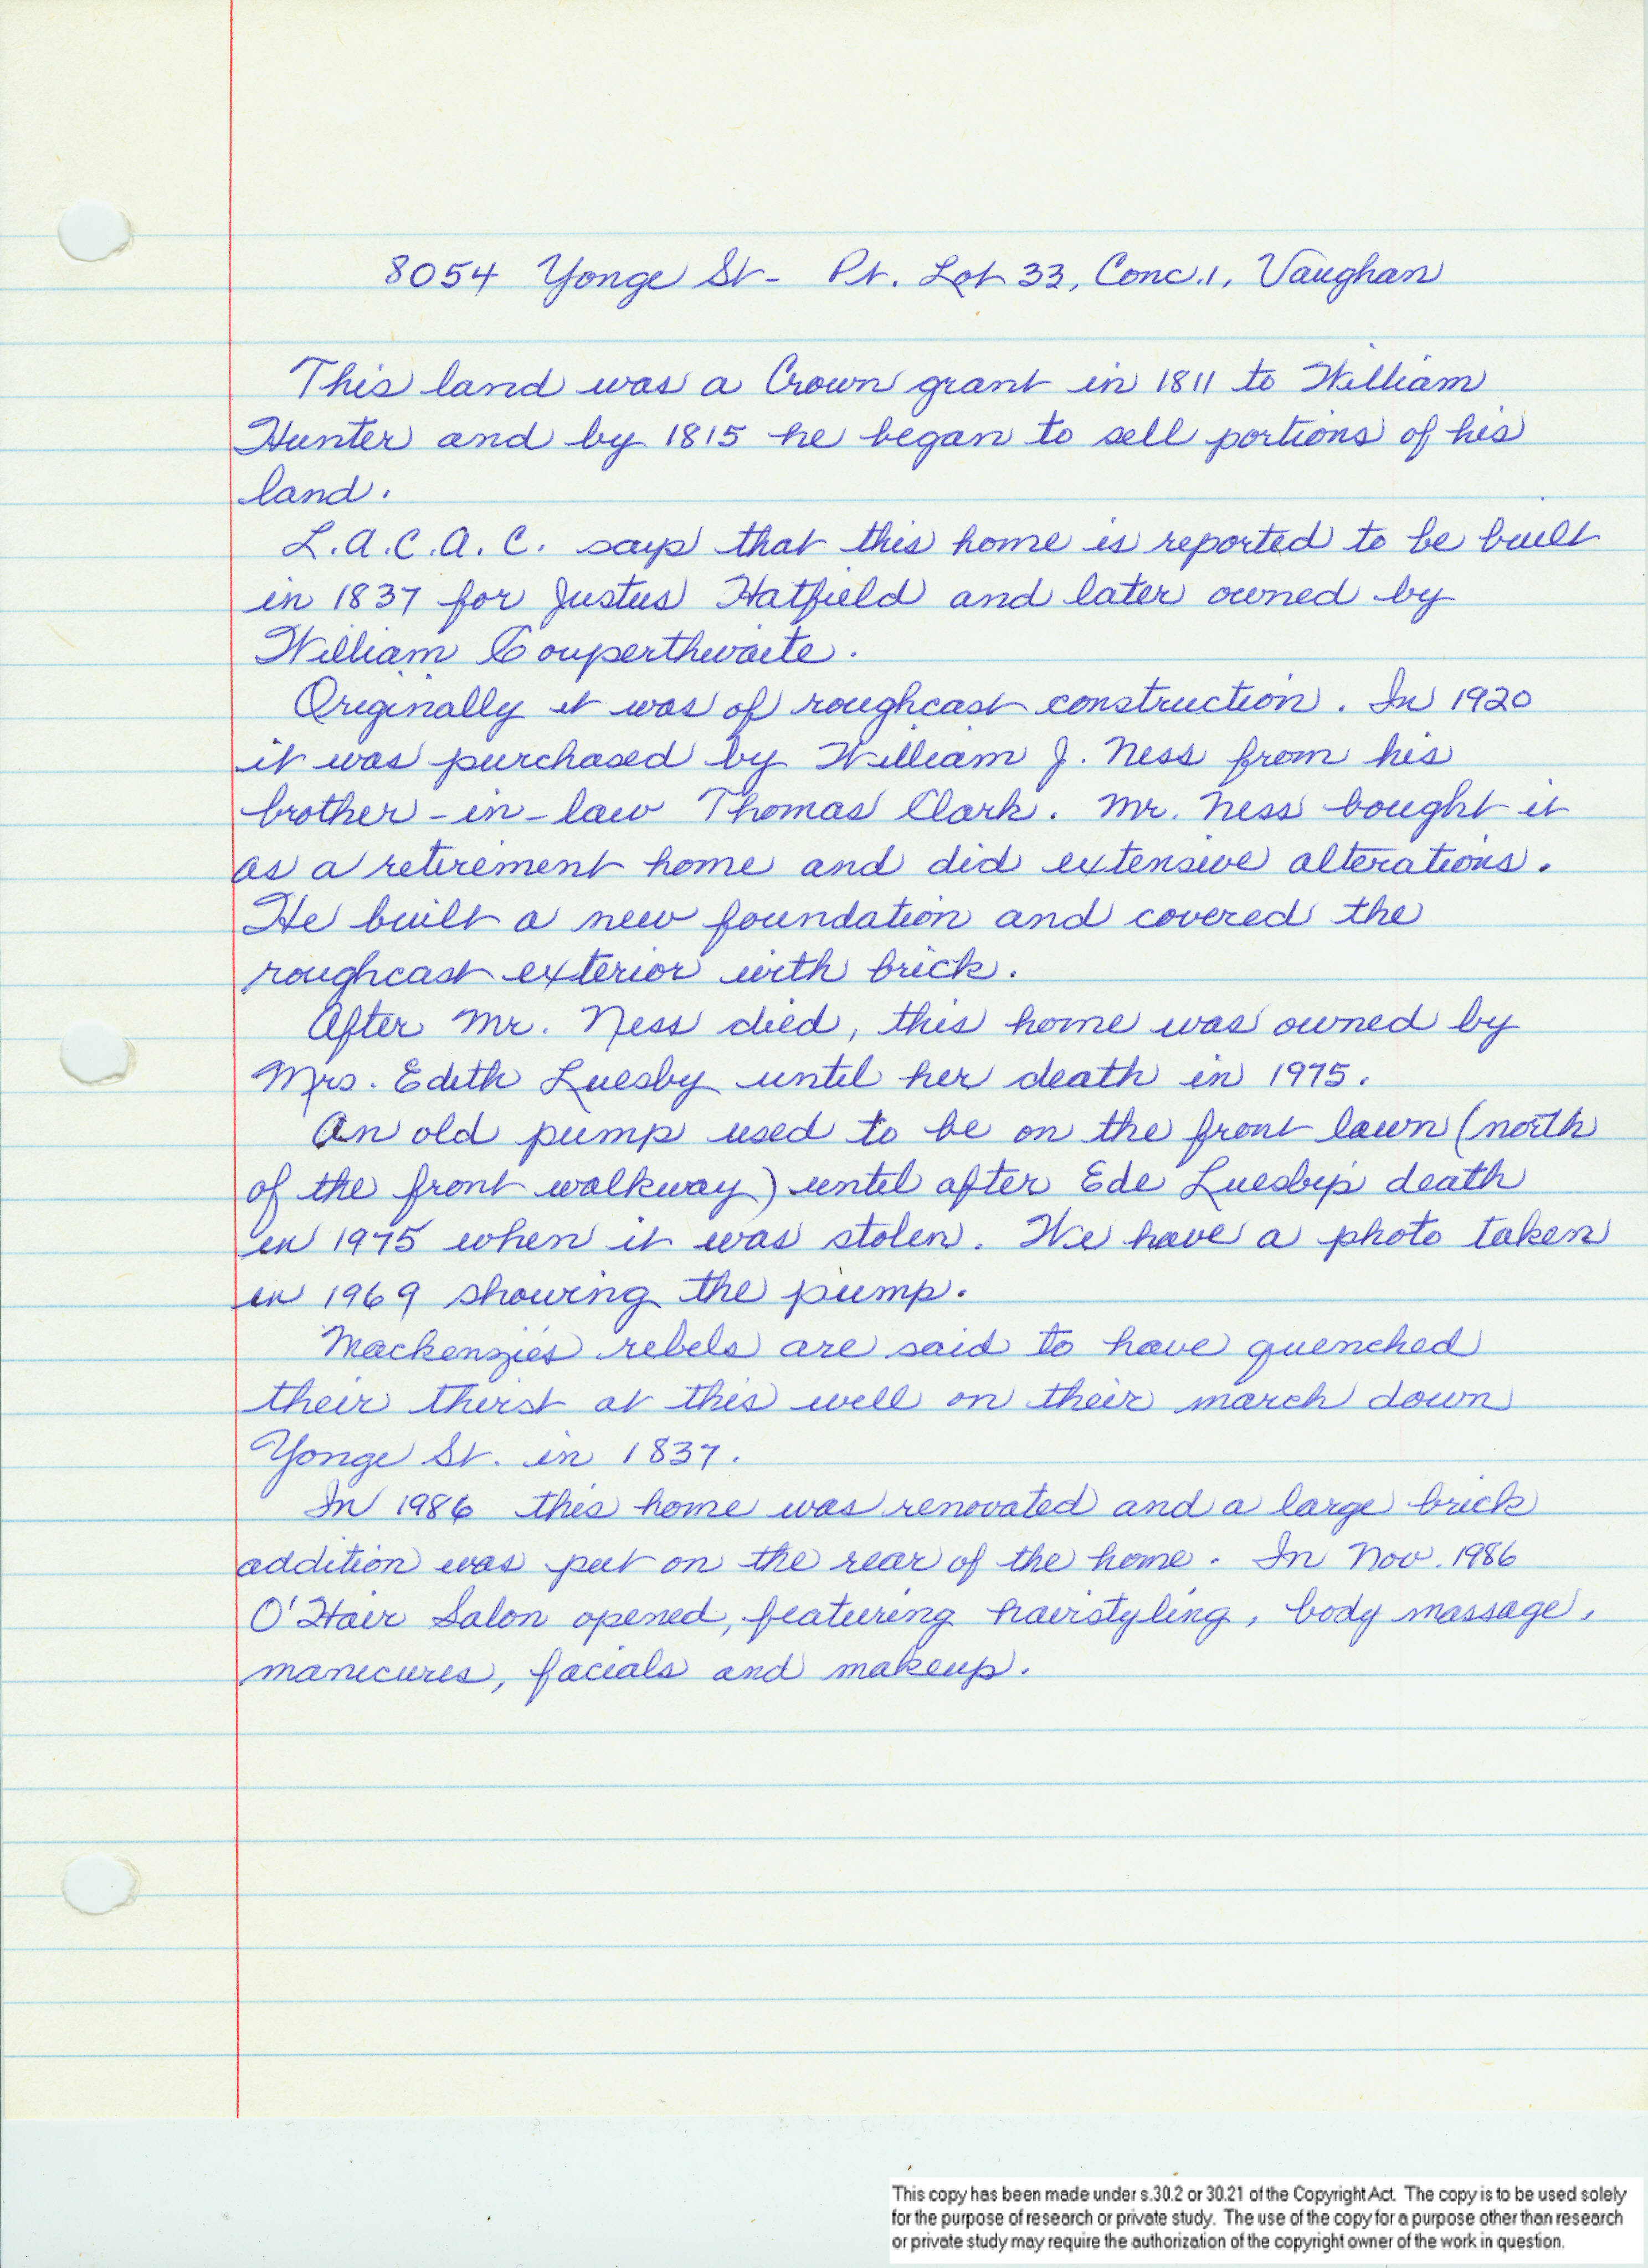 8054 Yonge St- Pt. Lot 33, Conc.1, Vaughan
This land was a Crown grant in 1811 to William
Hunter and by 1815 he began to sell portions of his
land.
L.A.C.A.C. says that this home is reported to be built
in 1837 for Justus Hatfield and later owned by
William Couperthwaite.
Originally it was of roughcast construction. In 1920
it was purchased by William J. Ness from his
brother-in-law Thomas Clark. Mr. Ness bought it
as a retirement home and did extensive alterations.
He built a new foundation and covered the
roughcast exterior with brick.
After Mr. Ness died, this home was owned by
Mrs. Edith Luesby until her death in 1975.
An old pump used to be on the front lawn (north
of the front walkway) until after Ede Luesby's death
in 1975 when it was stolen. We have a photo taken
in 1969 showing the pump.
Mackenzies rebels are said to have quenched
their thirst at this well on their march down
Yonge St. in 1837.
In 1986 this home was renovated and a large brick
addition was put on the rear of the home. In Nov. 1986
O'Hair Salon opened, featuring hairstyling, body massage,
manicures, facials and makeup.
This copy has been made under s.30.2 or 30.21 of the Copyright Act. The copy is to be used solely
for the purpose of research or private study. The use of the copy for a purpose other than research
or private study may require the authorization of the copyright owner of the work in question.